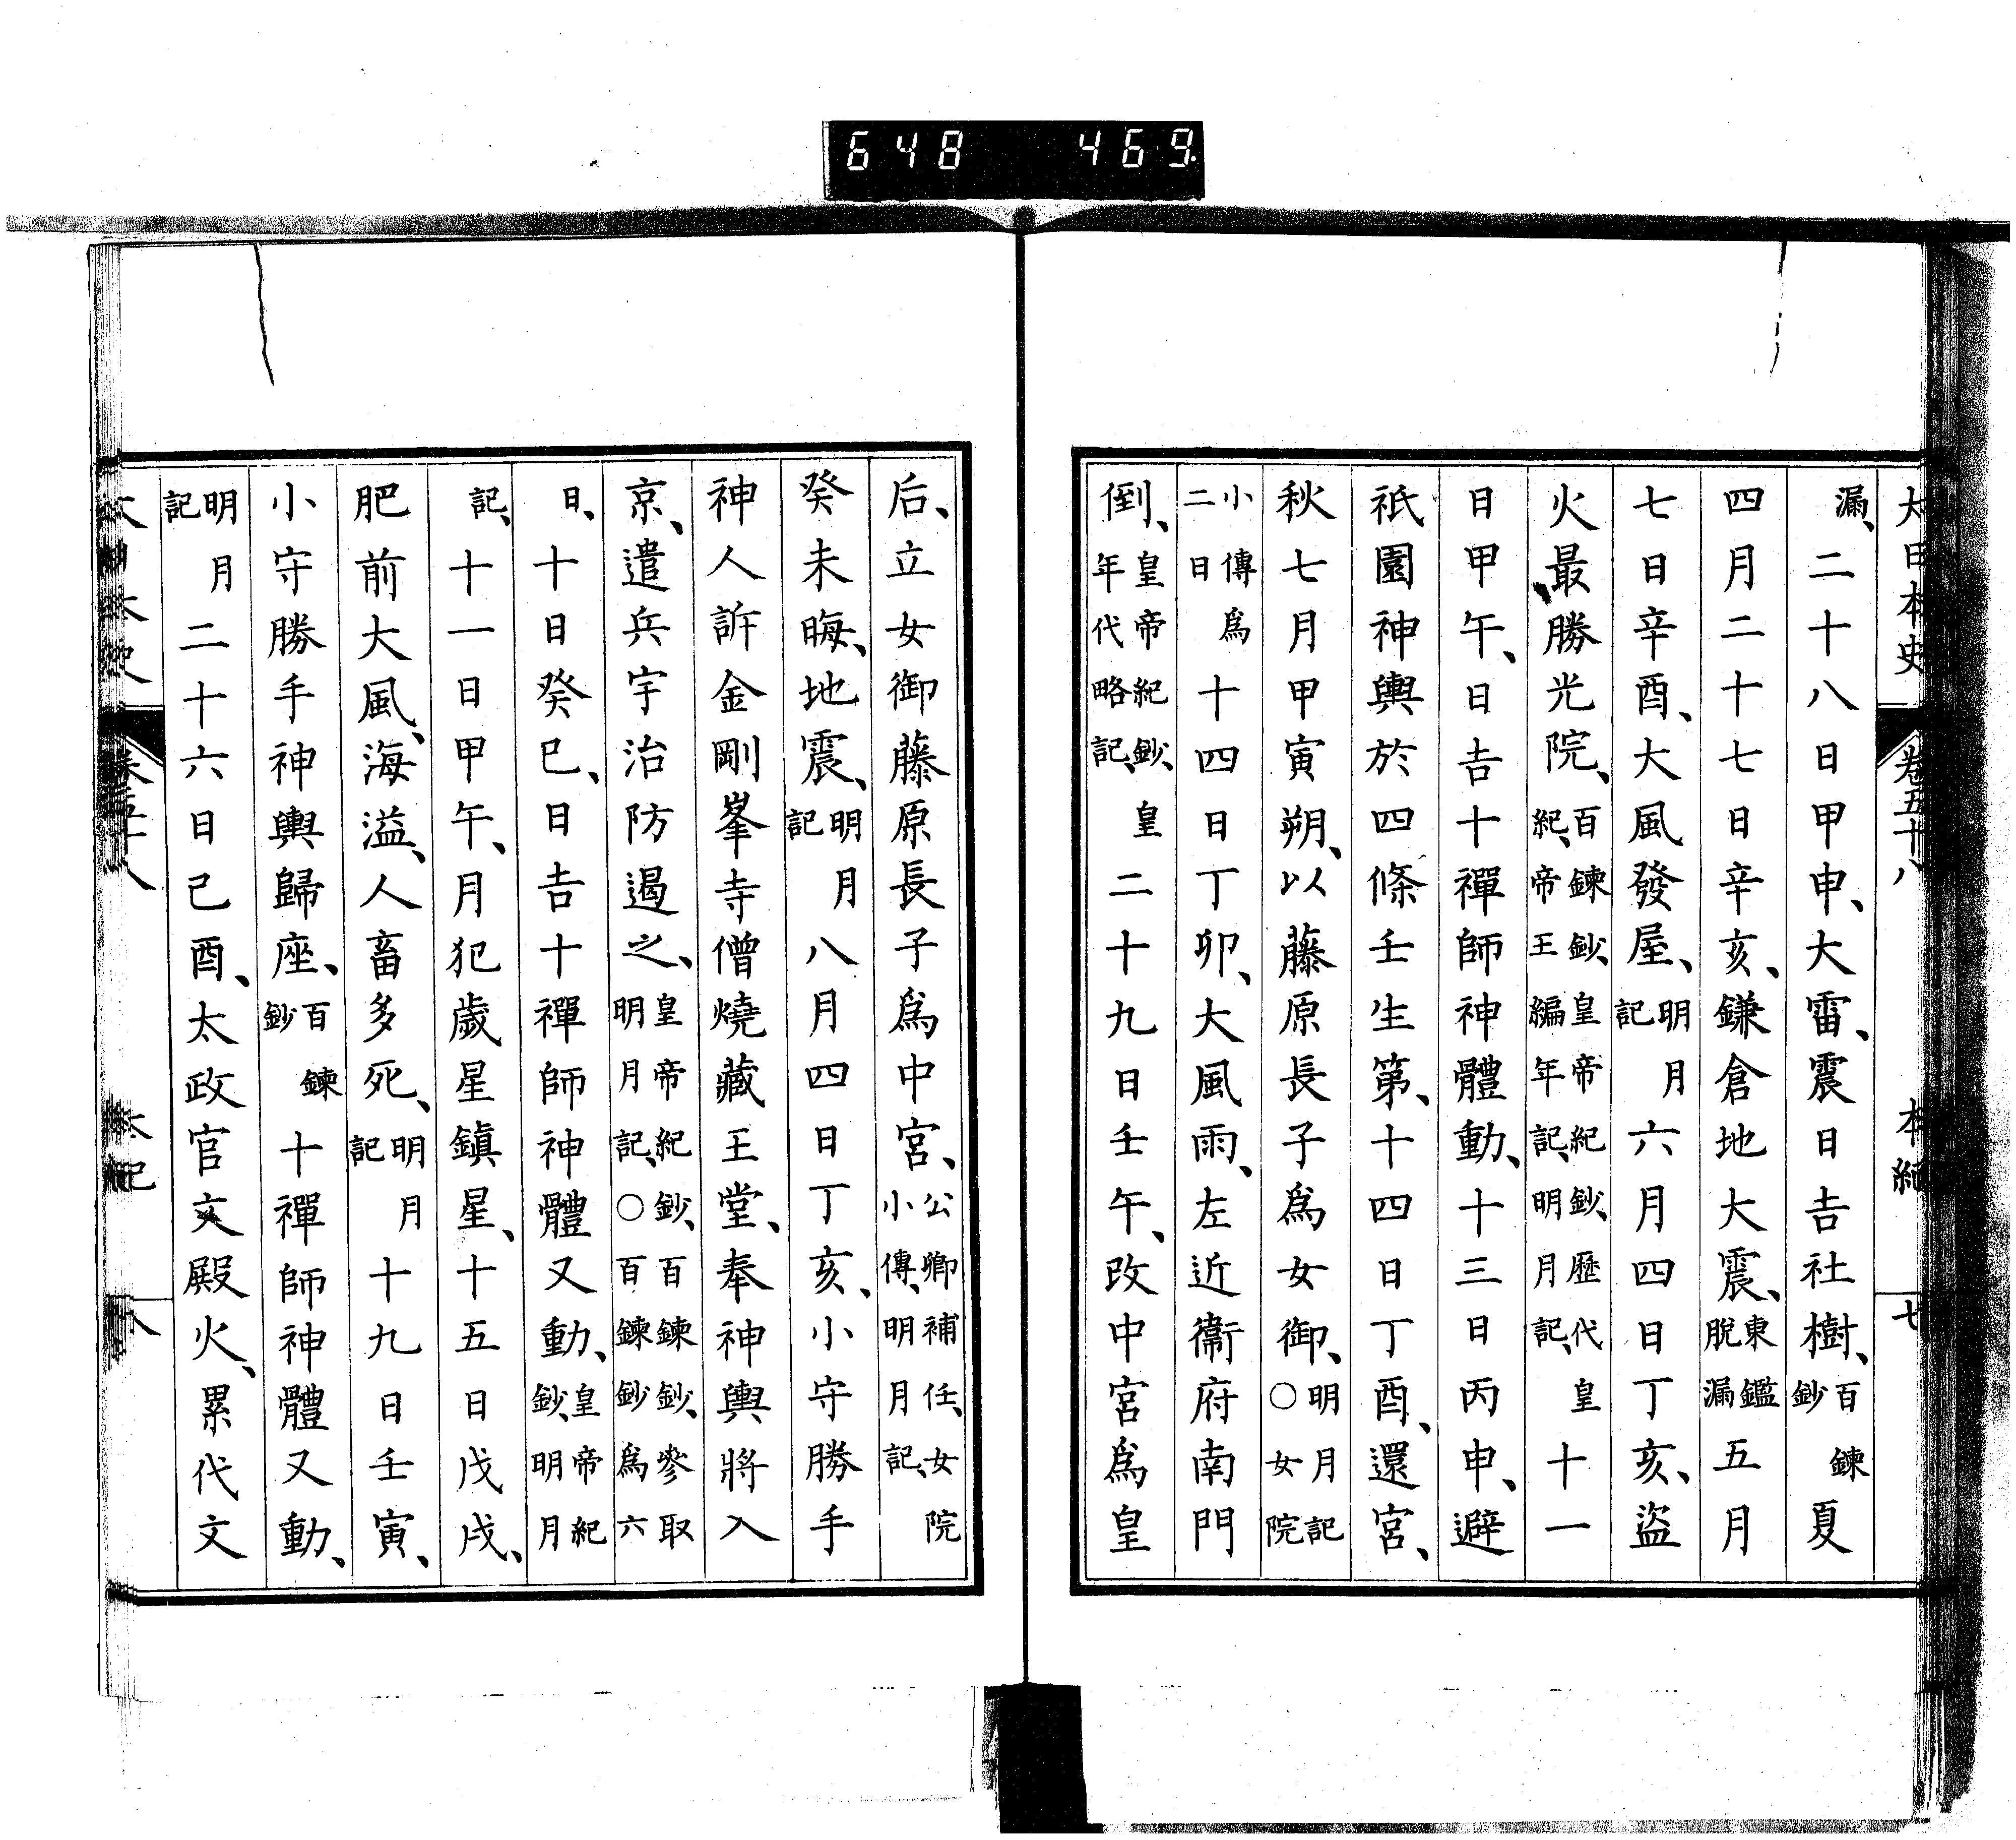 648 469
大日本史 卷五十八 本紀 七
漏、二十八日甲申、大雷、震日吉社樹、百鍊鈔夏
四月二十七日辛亥、鎌倉地大震、東鑑脫漏五月
七日辛酉、大風發屋、明月記六月四日丁亥、盜
火最勝光院、百鍊鈔、皇帝紀鈔、歷代皇紀、帝王編年記、明月記、十一
日甲午、日吉十禪師神體動、十三日丙申、避
祇園神輿於四條壬生第、十四日丁酉、還宮、
秋七月甲寅朔、以藤原長子爲女御、明月記○女院
小傳爲二日十四日丁卯、大風雨、左近衞府南門
倒、皇帝紀鈔、皇年代略記、二十九日壬午、改中宮爲皇
后、立女御藤原長子爲中宮、公卿補任、女院小傳、明月記、
癸未晦、地震、明月記八月四日丁亥、小守勝手
神人訴金剛峯寺僧燒藏王堂、奉神輿將入
京、遣兵宇治防遏之、皇帝紀鈔、百鍊鈔、參取明月記、○百鍊鈔爲六
日、十日癸巳、日吉十禪師神體又動、皇帝紀鈔、明月
記、十一日甲午、月犯歲星鎭星、十五日戊戌、
肥前大風、海溢、人畜多死、明月記十九日壬寅、
小守勝手神輿歸座、百鍊鈔十禪師神體又動、
明月記二十六日己酉、太政官文殿火、累代文
大日本史 卷五十八 本紀 八